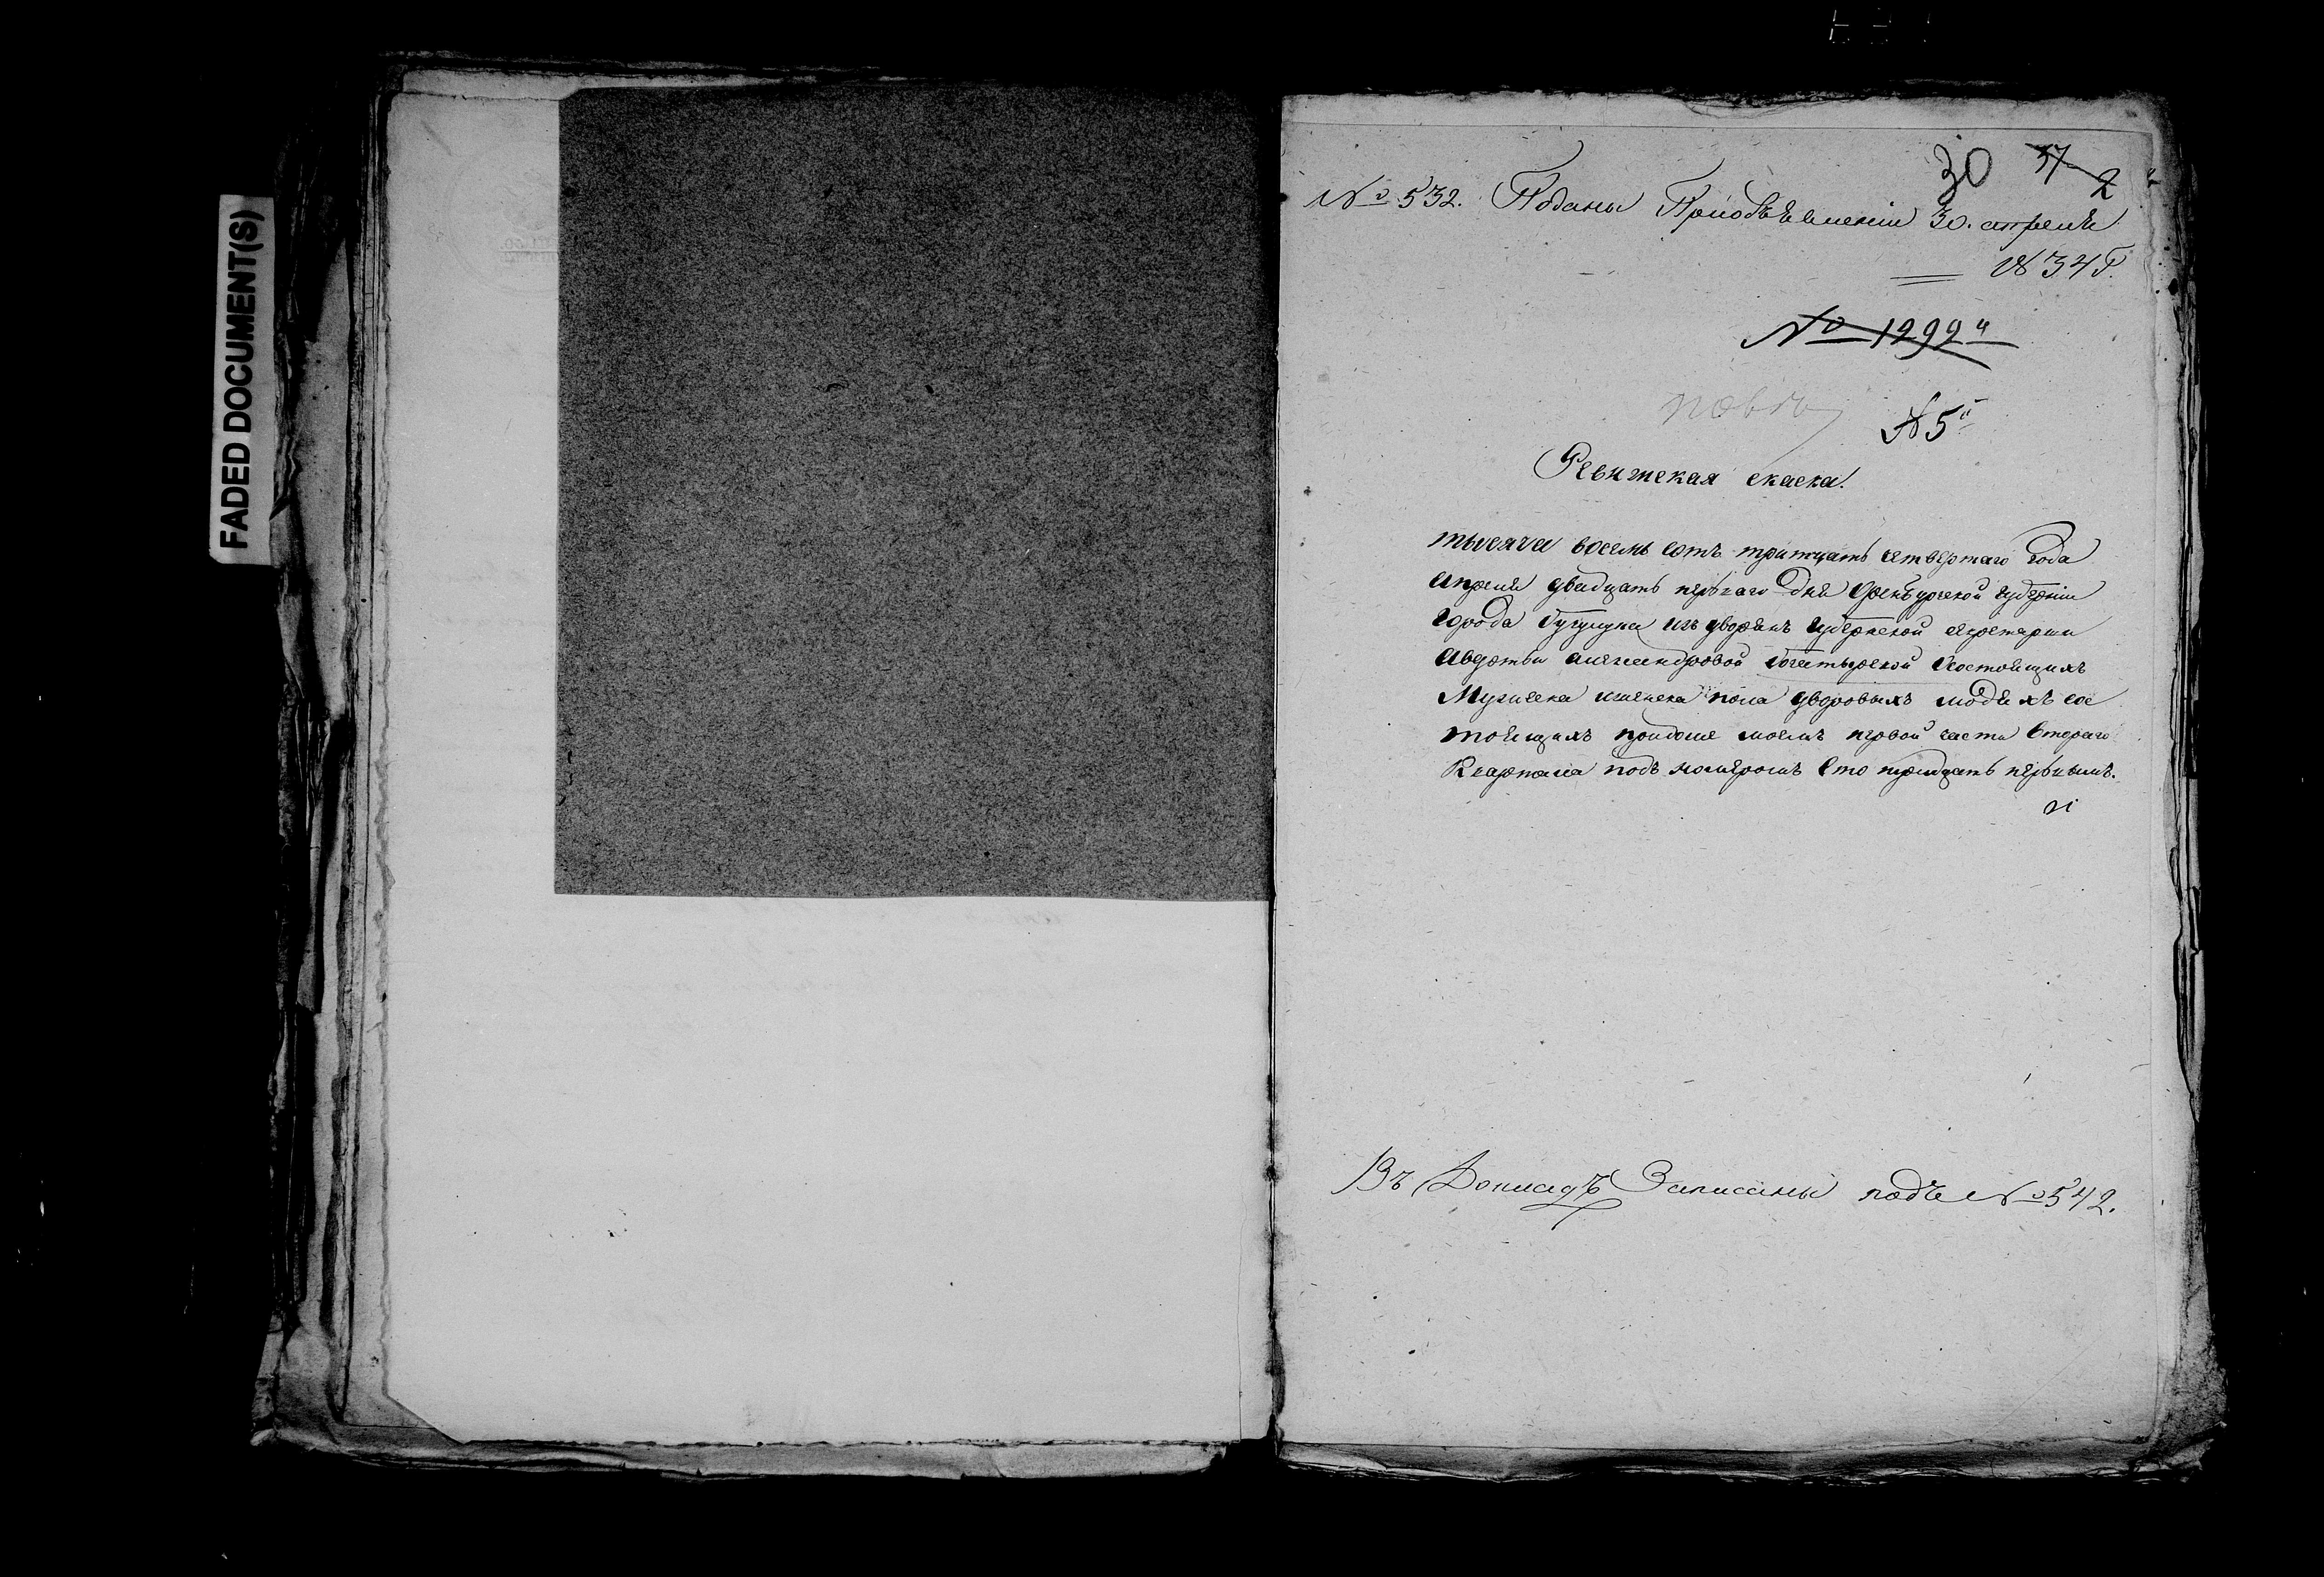 FADED DOCUMENT(S)
30 37 2
№ 532. Поданы Приобъявленiи 30. апреля
1834 Г.
№ 1299
№ 5
Ревижская скаска!
тысяча восемь сотъ тритцать четвертаго Года
апреля двадцать перьваго Дня Оренбургской губернiи
города Бугуруслана изъ дворянъ губернской секретарши
Авдотьи александровой Состоящихъ
Мужеска иженска пола дворовыхъ людяхъ сос
тоящихъ придоме моемъ первой части Втораго
Квартала подъ номеромъ Сто тридцать перьвымъ.
Въ Докладъ Записаны подъ № 542.